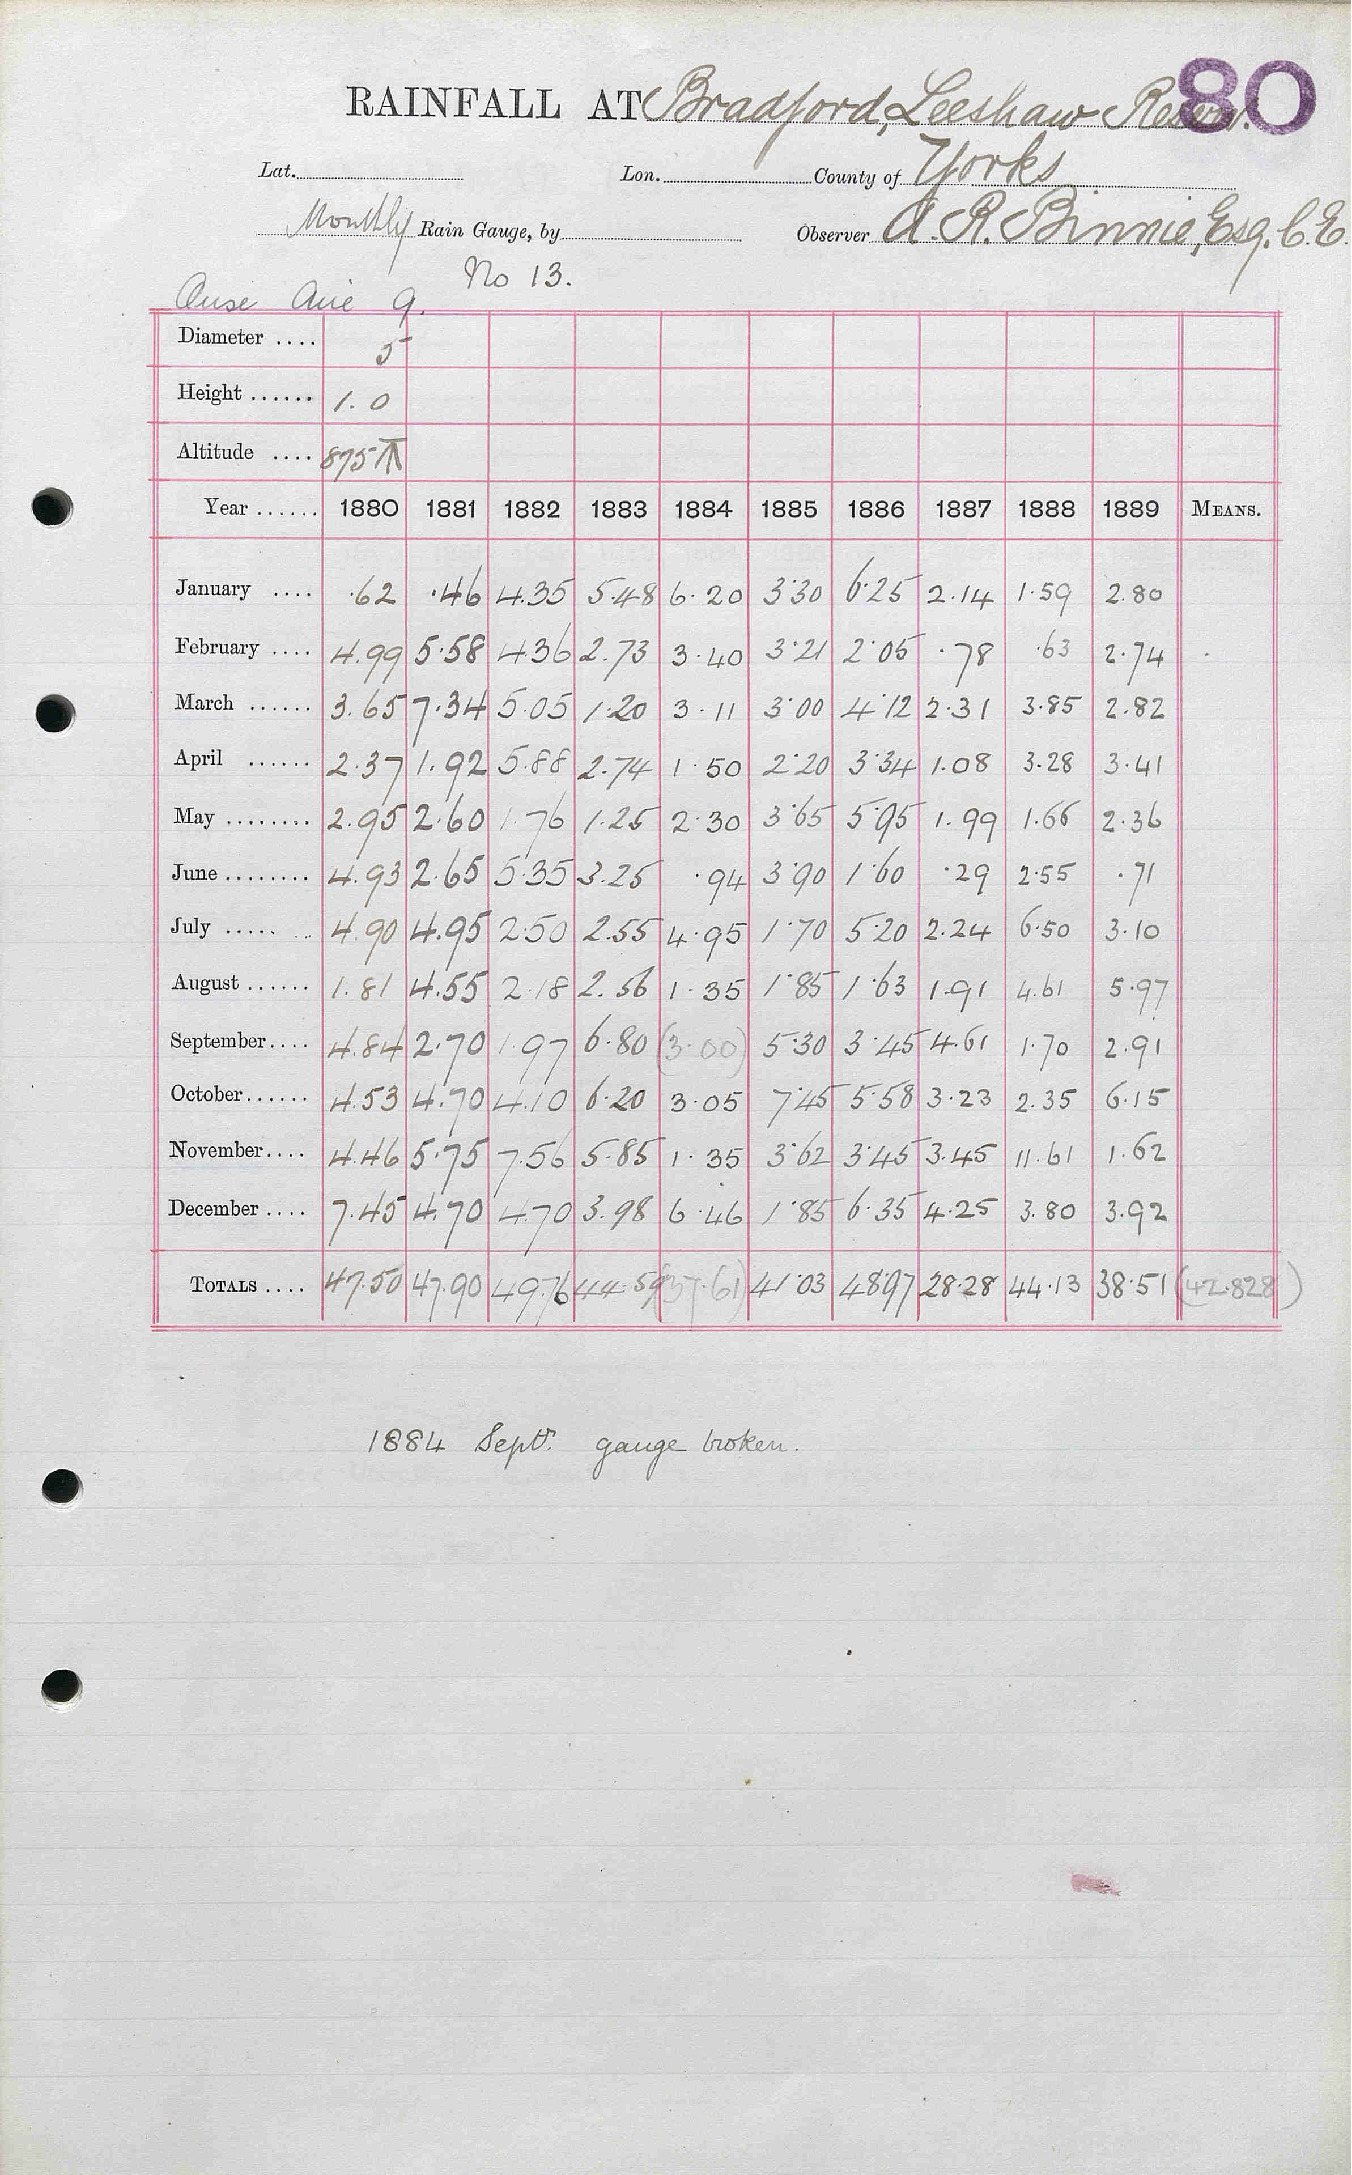 80
RAINFALL AT Bradford, Leeshaw Reserv.
Lat. Lon. County of Yorks
Monthly Rain Gauge, by Observer A. R. Binnie, Esq. C.E.
No 13.
Ouse Aire 9.
Diameter .... 5
Height ...... 1.0
Altitude .... 875
Year ...... 1880 1881 1882 1883 1884 1885 1886 1887 1888 1889 MEANS.
January .... .62 .46 4.35 5.48 6.20 3.30 6.25 2.14 1.59 2.80
February .... 4.99 5.58 4.36 2.73 3.40 3.21 2.05 .78 .63 2.74
March ...... 3.65 7.34 5.05 1.20 3.11 3.00 4.12 2.31 3.85 2.82
April ...... 2.37 1.92 5.88 2.74 1.50 2.20 3.34 1.08 3.28 3.41
May ........ 2.95 2.60 1.76 1.25 2.30 3.65 5.95 1.99 1.66 2.36
June ........ 4.93 2.65 5.35 3.25 .94 3.90 1.60 .29 2.55 .71
July ........ 4.90 4.95 2.50 2.55 4.95 1.70 5.20 2.24 6.50 3.10
August ...... 1.81 4.55 2.18 2.56 1.35 1.85 1.63 1.91 4.61 5.97
September.... 4.84 2.70 1.97 6.80 (3.00) 5.30 3.45 4.61 1.70 2.91
October...... 4.53 4.70 4.10 6.20 3.05 7.45 5.58 3.23 2.35 6.15
November.... 4.46 5.75 7.56 5.85 1.35 3.62 3.45 3.45 11.61 1.62
December .... 7.45 4.70 4.70 3.98 6.46 1.85 6.35 4.25 3.80 3.92
TOTALS .... 47.50 47.90 49.76 44.59 (37.61) 41.03 48.97 28.28 44.13 38.51 (42.828)
1884 Septr. gauge broken.